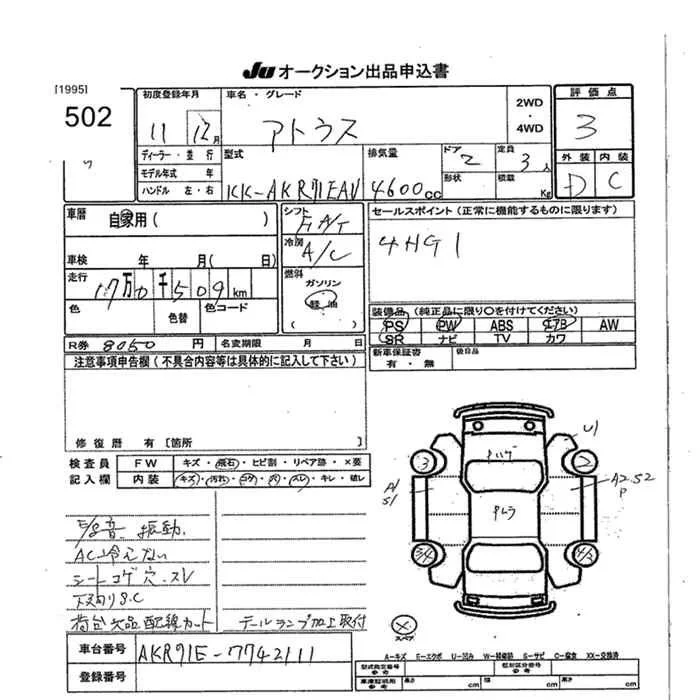 JU オークション出品申込書
[1995]
502
初度登録年月
11 12月
車名・グレード
アトラス
2WD
・
4WD
評価点
3
外装 内装
D C
ディーラー・並行
モデル年式 年
ハンドル 左・右
型式
KK-AKR71EAV
排気量
4600cc
ドア
2
定員
3人
形状
積載
Kg
車歴
自家用( )
車検 年 月(日)
走行
17万0千509km
色
色替
色コード
R券 8050円
名変期限 月 日
シフト
FA/T
冷房
A/C
燃料
ガソリン
軽油
( )
セールスポイント(正常に機能するものに限ります)
4HG1
装備品(純正品に限り○を付けてください)
PS PW ABS エアB AW
SR ナビ TV カワ
新車保証書
有・無
後日品
注意事項申告欄(不具合内容等は具体的に記入して下さい)
修復歴 有[箇所 ]
検査員
記入欄
FW キズ・飛石・ヒビ割・リペア跡・×要
内装 キズ・汚れ・コゲ・穴・スレ・キレ・破レ
E/g音 振動
AC冷えない
シートコゲ穴 スレ
下廻りS.C
荷台欠品配線カット
テールランプ加工取付
車台番号 AKR71E-7742111
登録番号
Pハゲ
Pムラ
U1
3
2
A1
S1
A2 S2
P
3/4
4/3
×
スペア
A-キズ E-エクボ U-凹み W-補修跡 S-サビ C-腐食 XX-交換済
型式指定番号
参考
類別区分番号
参考
車庫証明用
参考
長さ cm
幅 cm
高さ cm